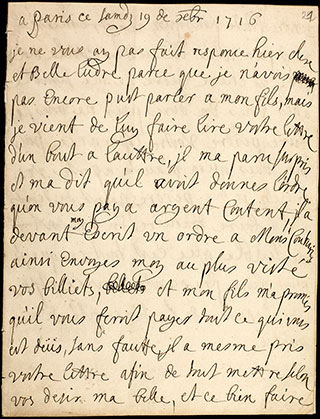 a paris ce samdy 19 de xbr 1716
je ne vous ay pas fait responce hier chere
et Belle ludre parce que je navois
pas Encore pust parler a mon fils, mais
je vient de luy faire lire votre lettre
d'un bout a lauttre, jl ma paru surpris
et ma dit quil avoit donnes lordre
quon vous paya argent Content, jl a
devant moy Escrit un ordre a Mons
ainsi Envoyes moy au plus viste
vos billiets, et mon fils m'a promis
quil vous feroit payer tout ce qui vous
est düs, sans fautte, jl a mesme pris
votre lettre afin de tout mettre selon
vos desir ma belle, et ce bien faire